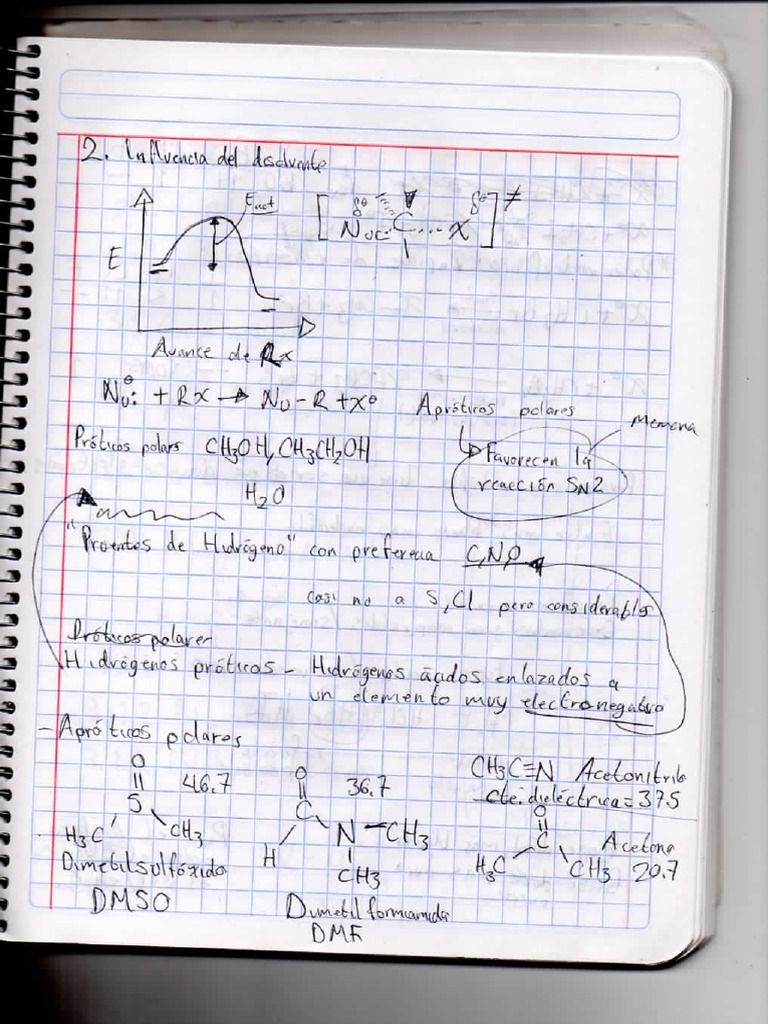 2. Influencia del disolvente
Eact
E
[Nuc····C····X]≠
δ⊖ δ⊖
Avance de Rx
Nu:⊖ + RX → Nu-R + X⊖
Apróticos polares
Memoria
Favorecen la
reacción SN2
Próticos polars CH3OH, CH3CH2OH
H2O
"Proentos de Hidrógeno" con preferecia
casi no a S, Cl pero considerables
Próticos polarer
Hidrógenos próticos - Hidrógenos ácidos enlazados a
un elemento muy electronegativo
- Apróticos polares
O
S
H3C CH3
46.7
Dimetilsulfóxido
DMSO
O
C
H N-CH3
CH3
36.7
Dimetil formamida
DMF
CH3C≡N Acetonitrilo
cte dieléctrica = 37.5
O
C
H3C CH3
Acetona
20.7